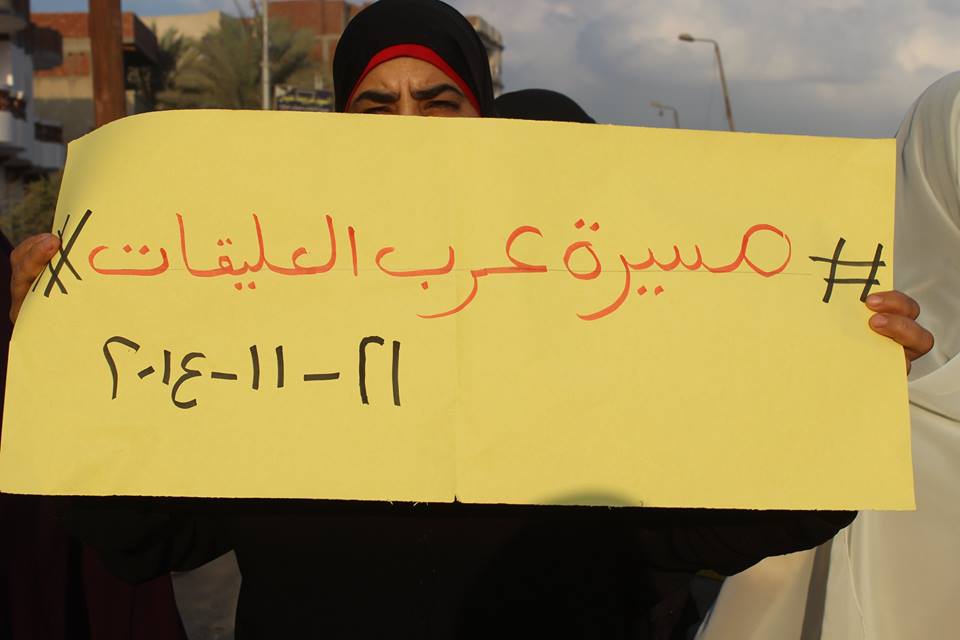 # مسيرة عرب العليقات #
٢١ - ١١ - ٢٠١٤